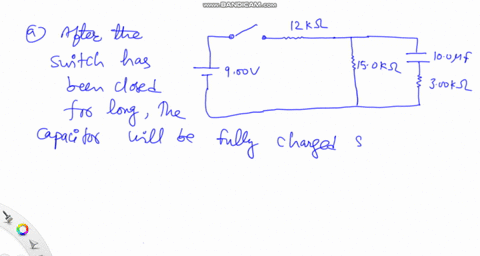 www.BANDICAM.com
a) After the
switch has
been closed
for long, The
capacitor will be fully charged s
12kΩ
9.00V
15.0kΩ
10.0μf
3.00kΩ